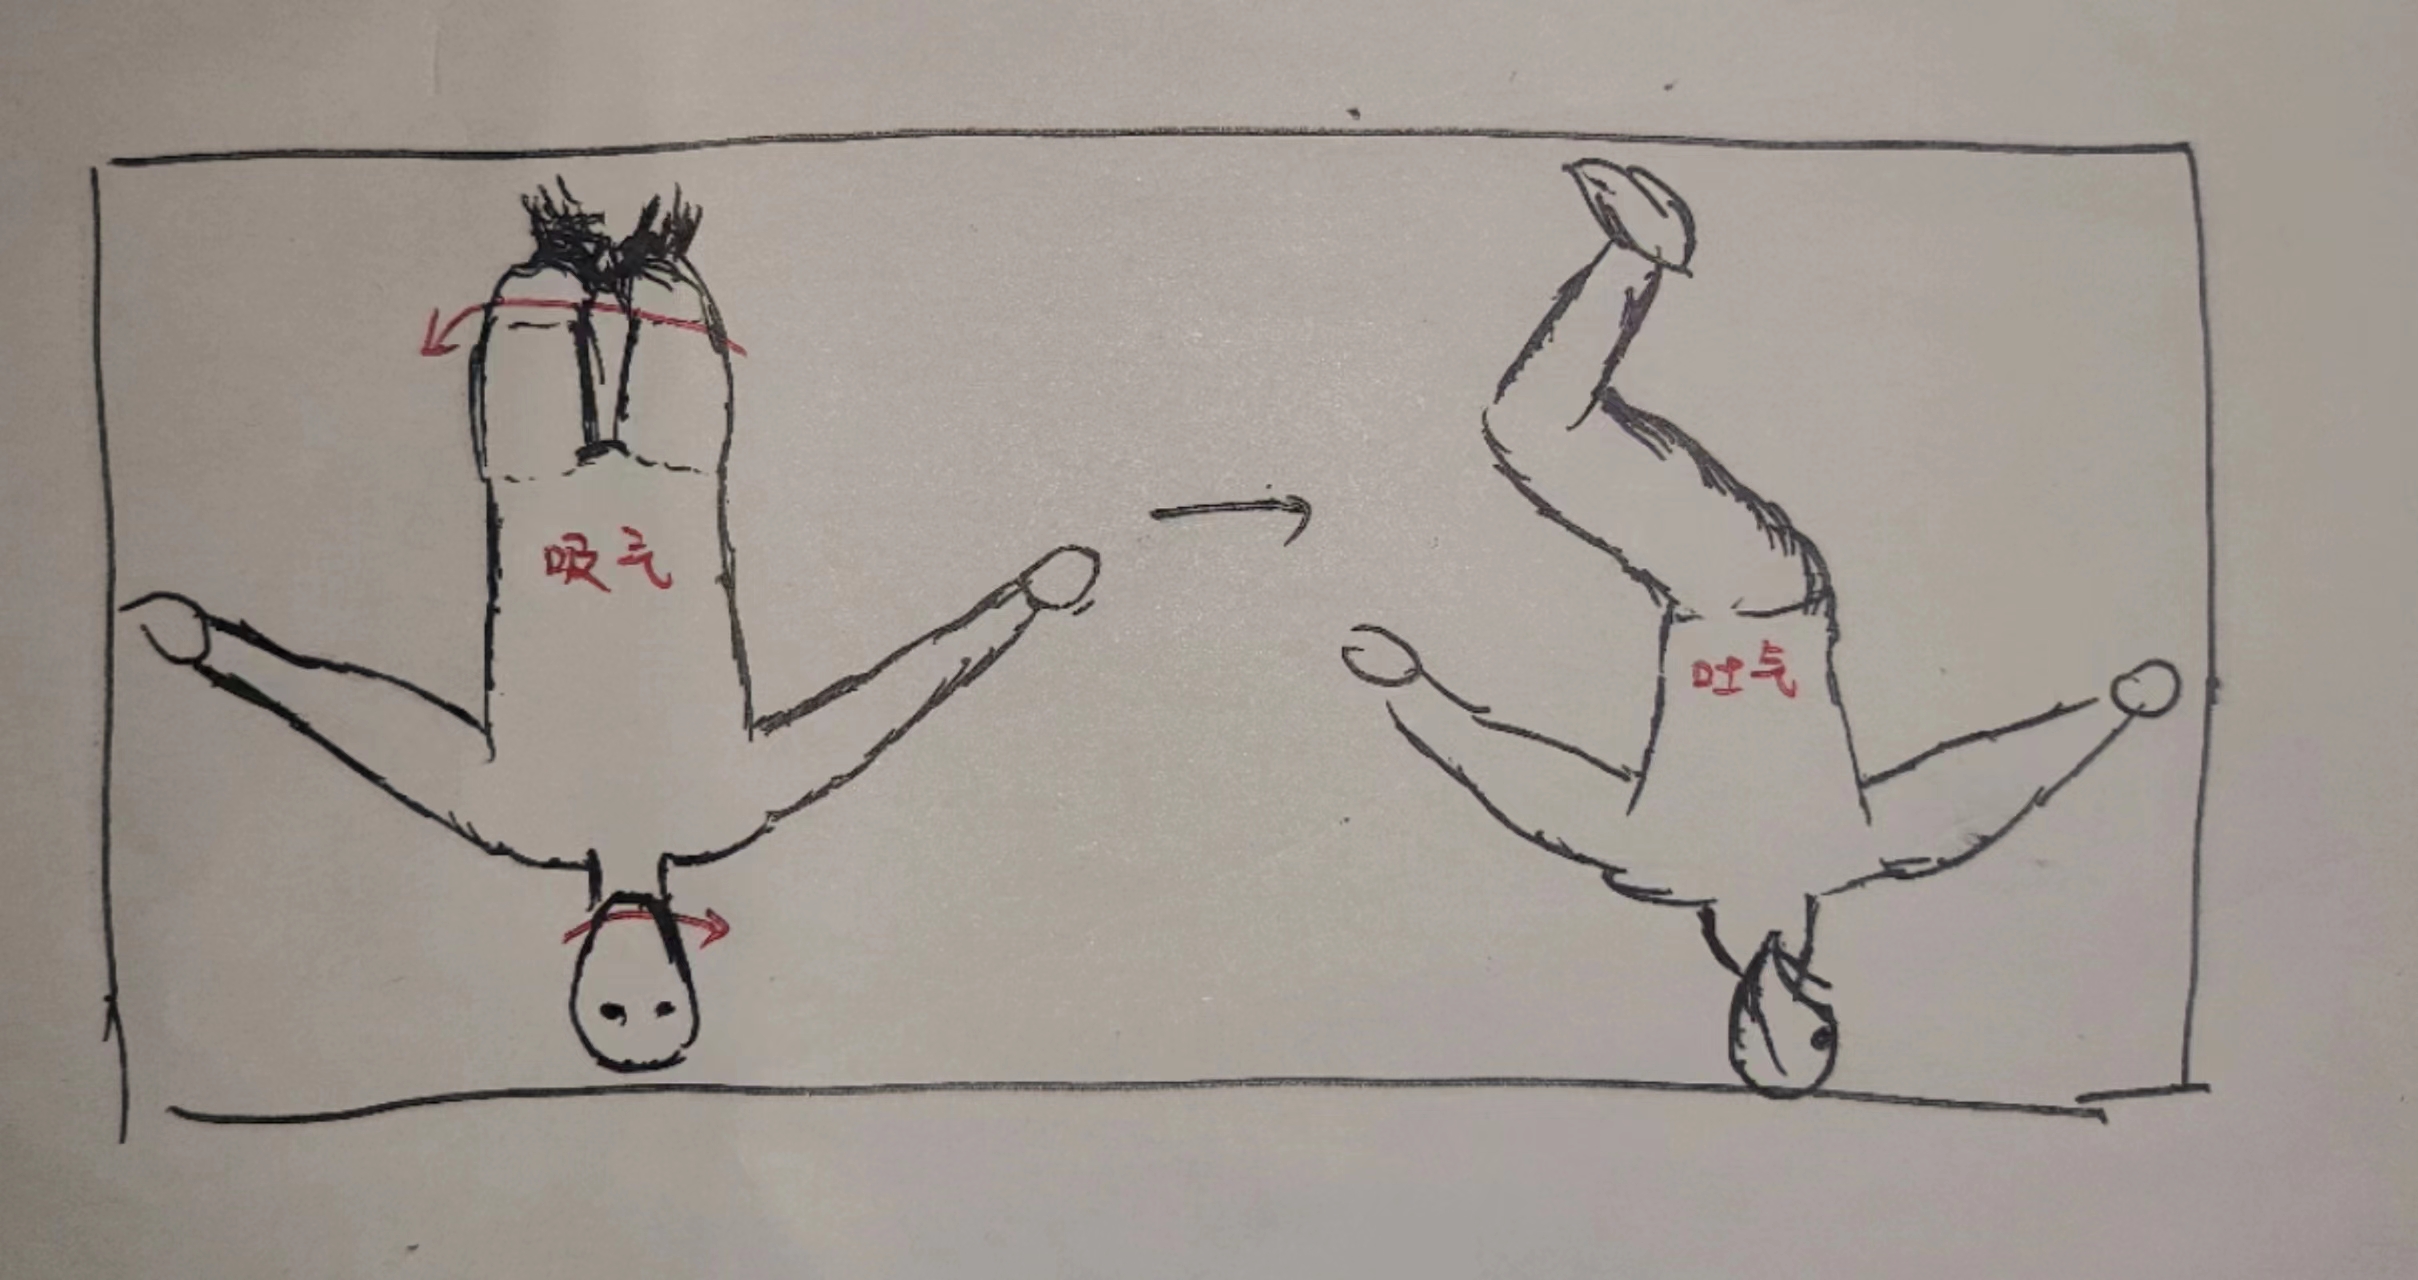 吸气
吐气